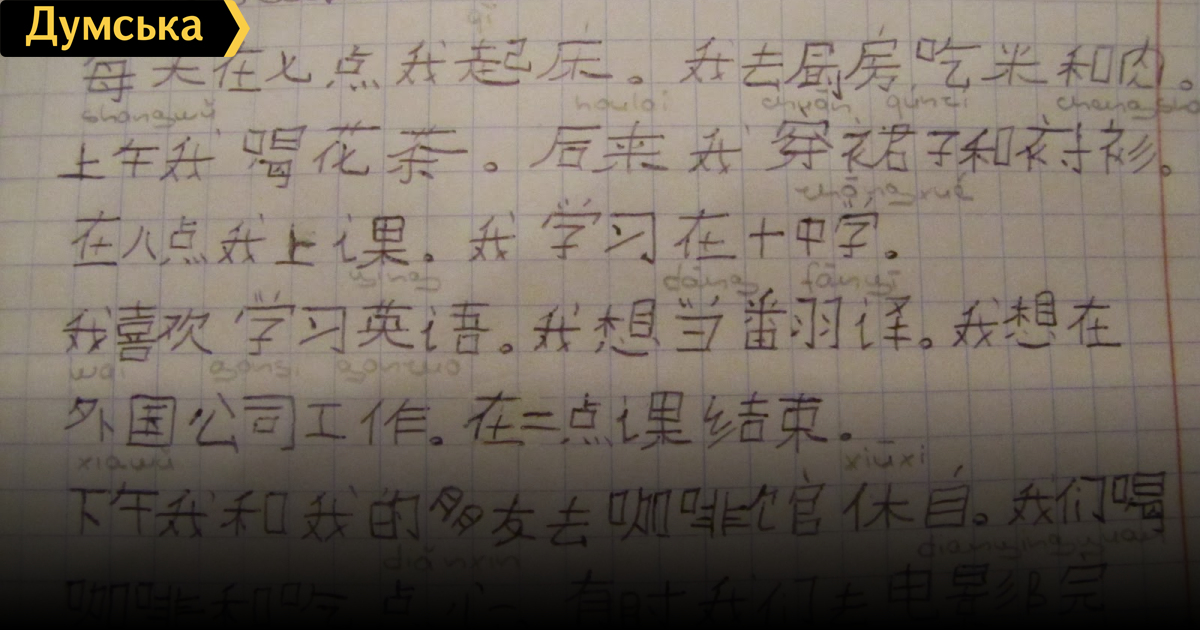 Думська
每天在七点我起床。我去厨房吃米和肉。
shangwu houlai chuān qúnzi chensha
上午我喝花茶。后来我穿裙子和衬衫。
zhōngxué
在八点我上课。我学习在十中学。
yīng dāng fānyì
我喜欢学习英语。我想当番羽译。我想在
wai gongsi gongzuo
外国公司工作。在二点课结束。
xiawu xiūxi
下午我和我的多多友去咖啡馆休自。我们喝
diǎnxin dianyingyuan
咖啡和吃点心。有时我们去电影院